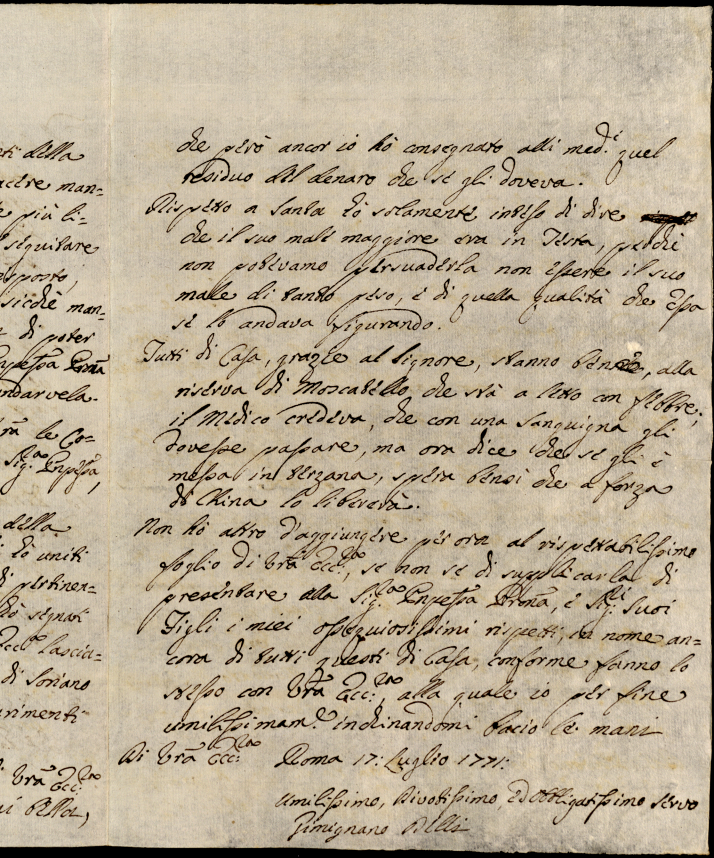 ti della
acere man=
e più li=
seguitare
esposto,
sicchè man=
di poter
npessa Prñā
andarvela.
rã le Co=
Sig.ra Pnpessa,
della
ò uniti
di pertinen=
hò segnati
Ecc.za lascia=
di Soriano
urimenti
i Vrã Ecc.za
Bellei,
che però ancor io hò consegnato alli med.i quel
residuo del denaro che se gli doveva.
Rispetto a Santa hò solamente inteso di dire
che il suo male maggiore era in Testa, perchè
non potevamo persuaderla non essere il suo
male di tanto peso, e di quella qualità che Essa
se lo andava figurando.
Tutti di Casa, grazie al Signore, stanno bene, alla
riserva di Moscatello che stà a letto con febbre;
il Medico credeva, che con una sanguigna gli
dovesse passare, ma ora dice che se gli è
messa in terzana, spera bensì che a forza
di China lo libererà.
Non hò altro d'aggiungere per ora al rispettabilissimo
foglio di Vrã Ecc.za, se non se di supplicarla di
presentare alla Sig.ra Pnpessa Prñā, e Sig.i Suoi
Figli i miei ossequiosissimi rispetti, in nome an=
cora di tutti questi di Casa, conforme fanno lo
stesso con Vrã Ecc.za, alla quale io per fine
umilissimam.e inchinandomi bacio le mani
Di Vrã Ecc.za Roma 17: Luglio 1771:
Umilissimo, Divotissimo, ed Obbligatissimo Servo
Gimignano Bellei